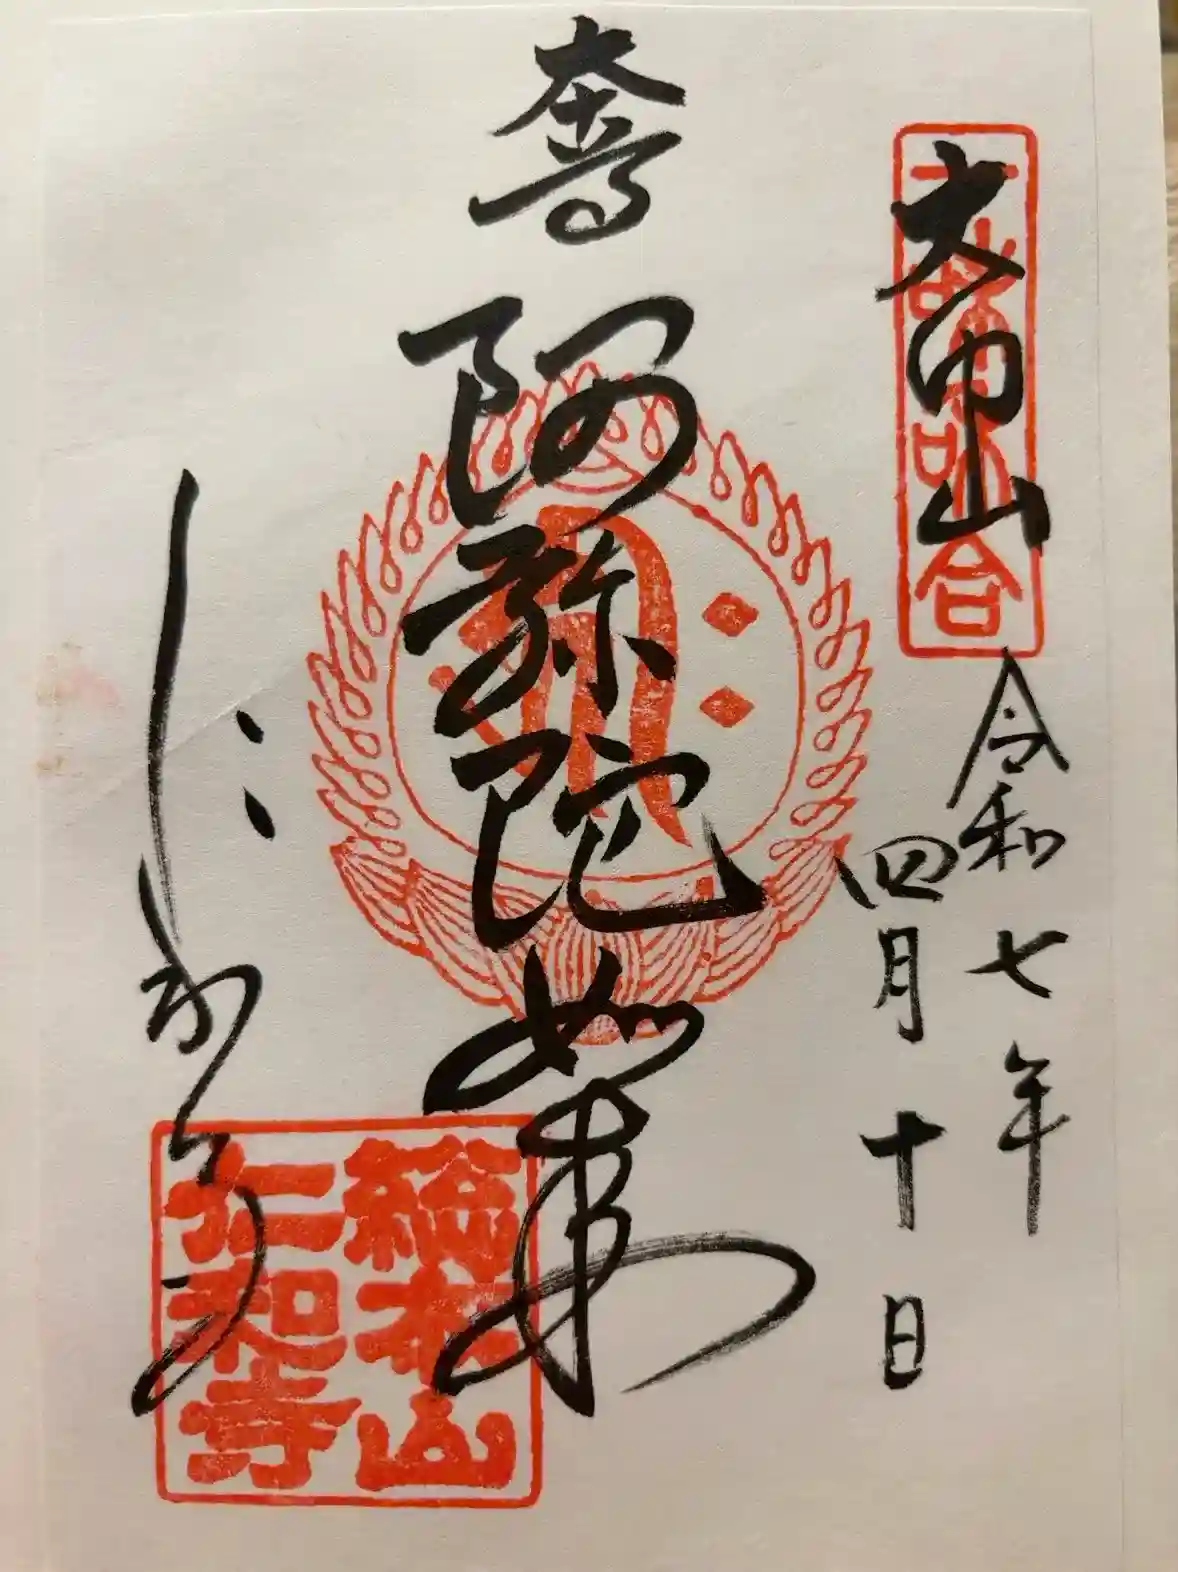 大内山
令和七年
四月十日
本尊
阿弥陀如来
仁和寺
総本山
仁和寺